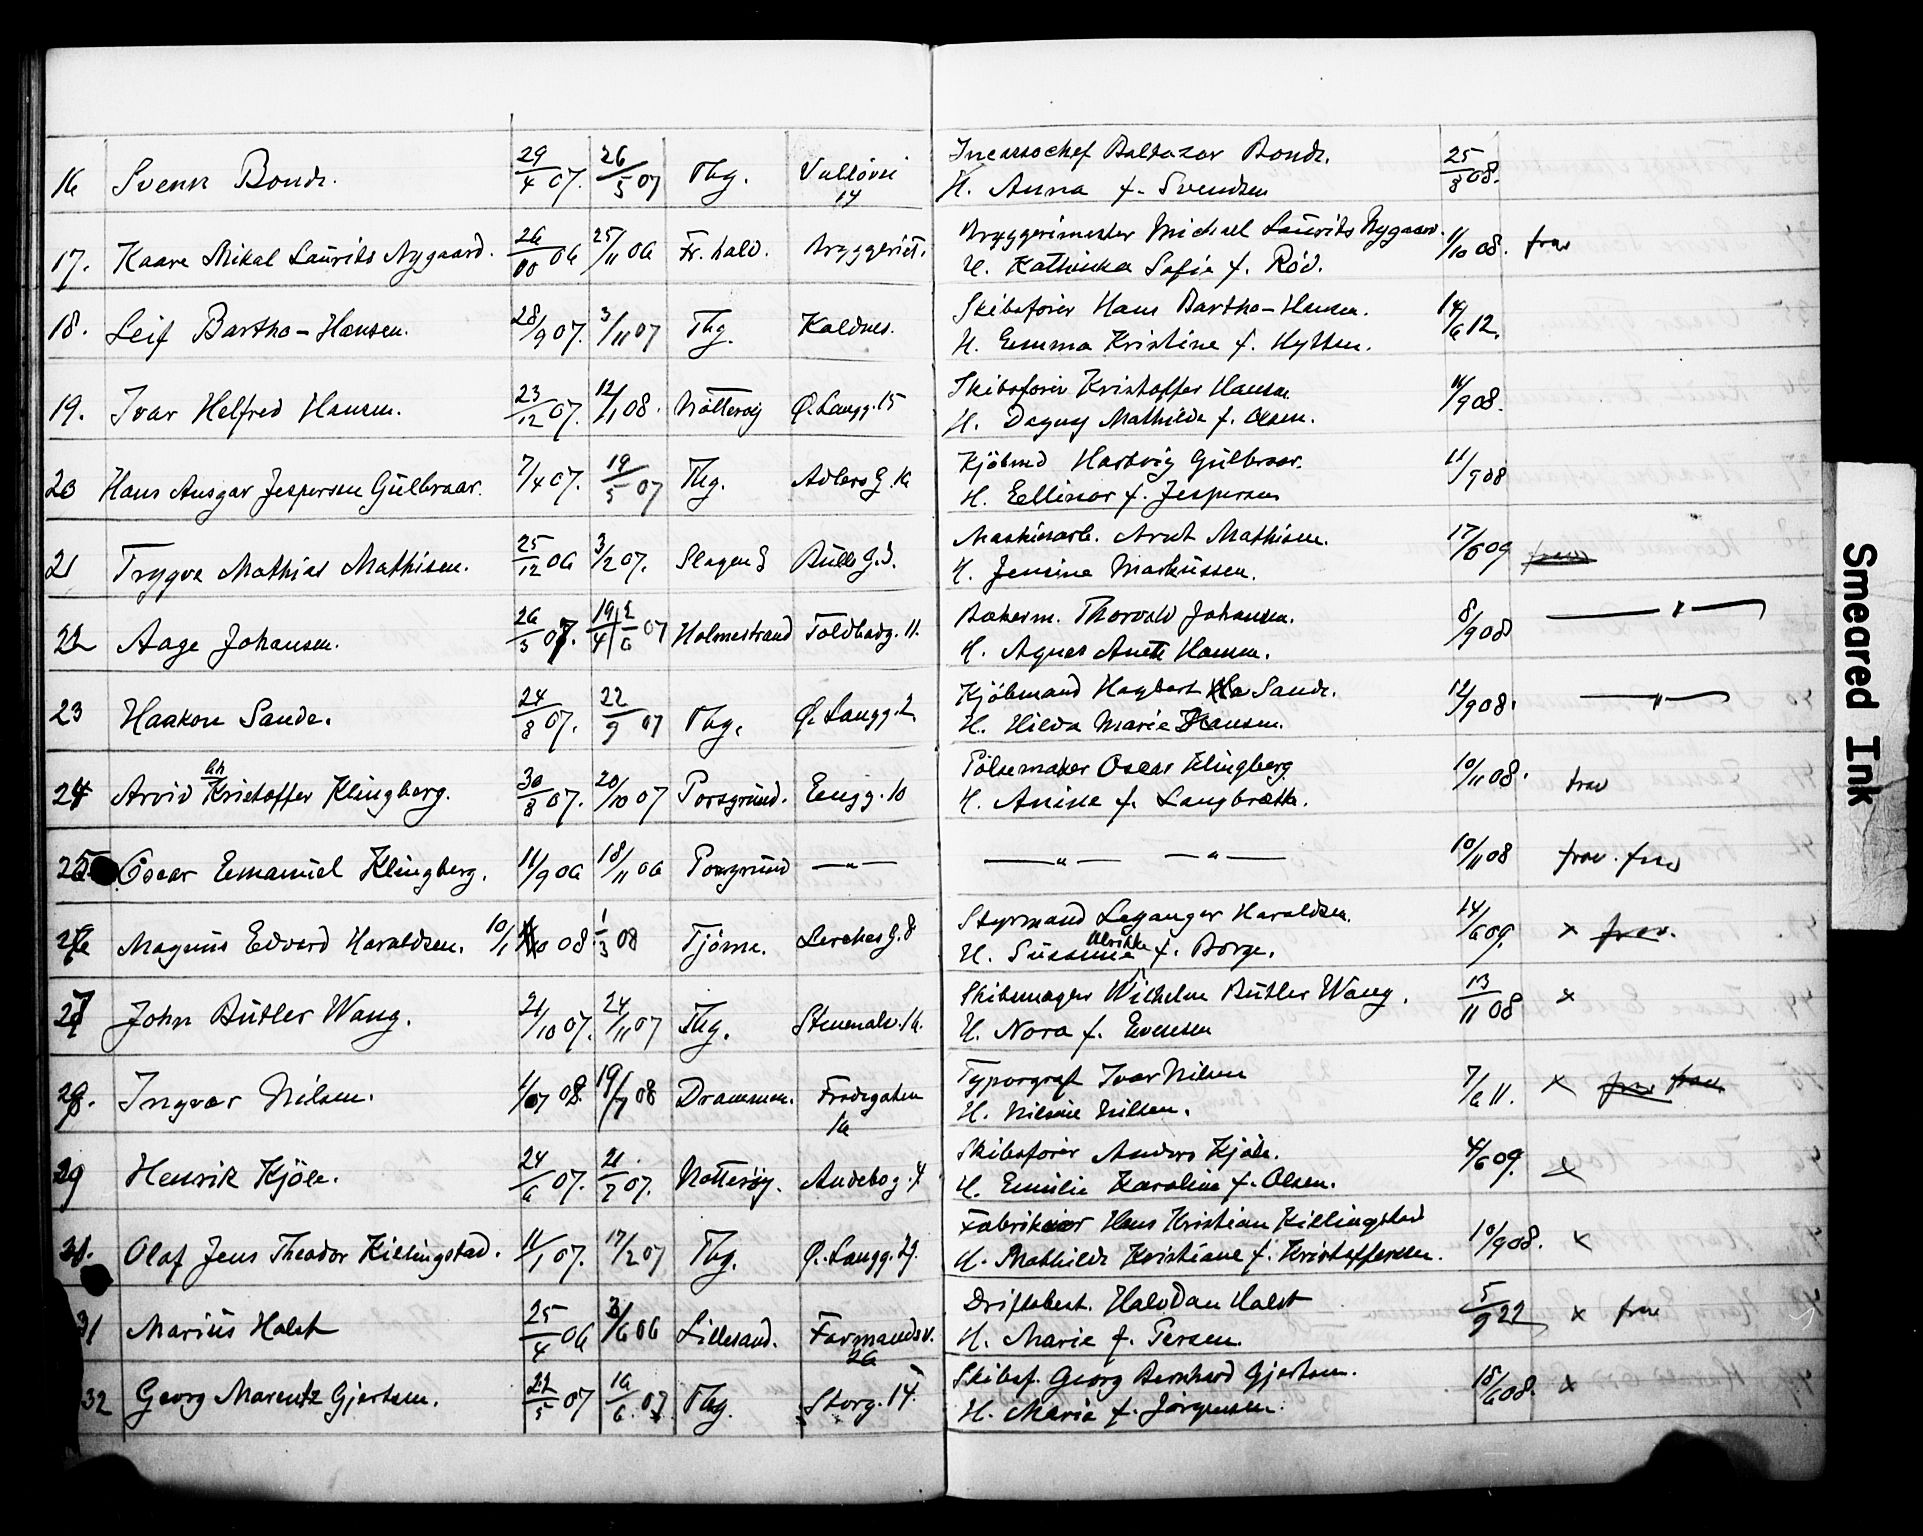 16 Svenn Bonde. 29/4 07. 26/5 07 Tbg. Valløvei 14 Incassochef Baltazar Bonde. H. Anna f. Svendsen 25/8 08.
17. Kaare Mikal Laurits Nygaard. 26/10 06 25/11 06 Fr.hald. Bryggeriet. Bryggerimester Michael Laurits Nygaard. H. Kathinka Sofie f. Röd. 11/10 08. frav
18. Leif Bartho-Hansen. 28/9 07. 3/11 07 Tbg. Kaldnes. Skibsfører Hans Bartho-Hansen. H. Emma Kristine f. Hytten. 14/6 12.
19. Ivar Helfred Hansen. 23/12 07. 12/1 08. Nötterøy Ø.Langg. 15 Skibsfører Kristoffer Hansen H. Dagny Mathilde f. Olsen. 11/9 08.
20 Hans Ansgar Jespersen Gülbraar. 7/4 07. 19/5 07 Tbg. Adlers G. 16 Kjöbmd Hartvig Gülbraar. H. Ellinor f. Jespersen 11/9 08
21 Trygve Mathias Mathisen. 25/12 06 3/2 07. Slagen S Bulls G. 3. Maskinarb. Arnt Mathisen. H. Jensine Markussen. 17/8 09 frav
22 Aage Johansen. 26/3 07. 19/4 2/6 07 Holmestrand Toldbodg. 11. Bakerm. Thorvald Johansen. H. Agnes Anette Hansen. 8/9 08 — " —
23 Haakon Sande. 24/8 07. 22/9 07 Tbg. Ø. Langg. 2 Kjöbmand Hagbart Sande. H. Hilda Marie Hansen. 12/9 08. — " —
24 Arvid Kristoffer Klingberg. 30/8 07. 20/10 07 Porsgrund. Engg. 10 Pölsemaker Oscar Klingberg H. Anine f. Langbrætte. 10/11 08. frav
25 Oscar Emanuel Klingberg. 11/9 06 18/11 06 Porsgrund — " — — " — — " — 10/11 08 frav. frav
26 Magnus Edvard Haraldsen. 10/1 08. 1/3 08 Tjöme. Lerches G. 8 Styrmand Leganger Haraldsen. H. Susanne Ulrikke f. Borge. 14/6 09. x frav.
27 John Butler Wang. 21/10 07. 24/11 07 Tbg. Stenmalv. 16. Skibsmægler Wilhelm Butler Wang. H. Nora f. Evensen 13/11 08 x
28. Ingvar Nilsen. 1/7 08 19/7 08 Drammen. Frodegaten 1a Typograf Ivar Nilsen H. Nilsine Nilsen. 7/6 11. x frav frav
29 Henrik Kjöle. 24/6 07. 21/7 07. Nötterøy. Andebog. 4 Skibsfører Anders Kjöle. H. Emilie Karoline f. Olsen. 4/6 09. x
30. Olaf Jens Theodor Killingstad. 11/1 07. 17/2 07 Tbg. Ø. Langg. 29. Fabrikeier Hans Kristian Killingstad H. Mathilde Kristiane f. Kristoffersen. 10/9 08. x
31 Marius Holst 25/4 06 3/6 06 Lillesand. Farmandsv. 26 Driftsbest. Halvdan Holst H. Marie f. Persen. 5/9 22 x frav
32 Georg Marentz Gjertsen. 22/5 07 16/6 07. Tbg. Storg. 14. Skibsf. Georg Bernhard Gjertsen. H. Marie f. Jörgensen. 18/6 08. x
Smeared Ink